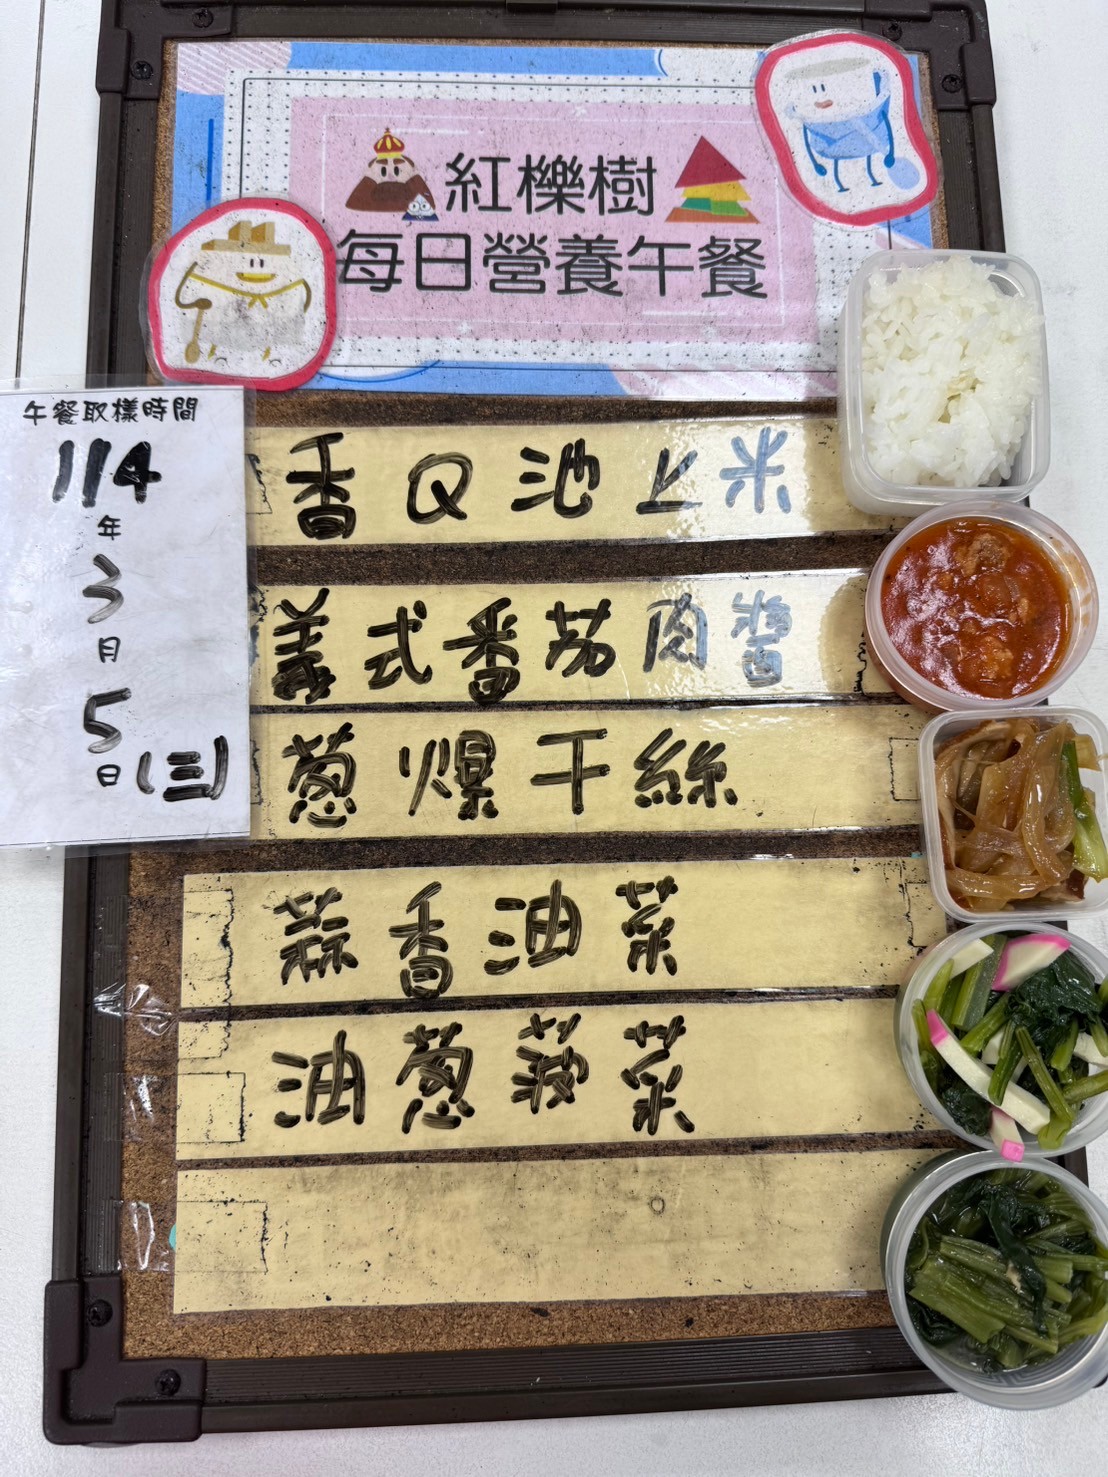 紅櫟樹
每日營養午餐
午餐取樣時間
114
年
3
月
5
日(三)
香Q池上米
義式番茄肉醬
蔥爆干絲
蒜香油菜
油蔥菠菜